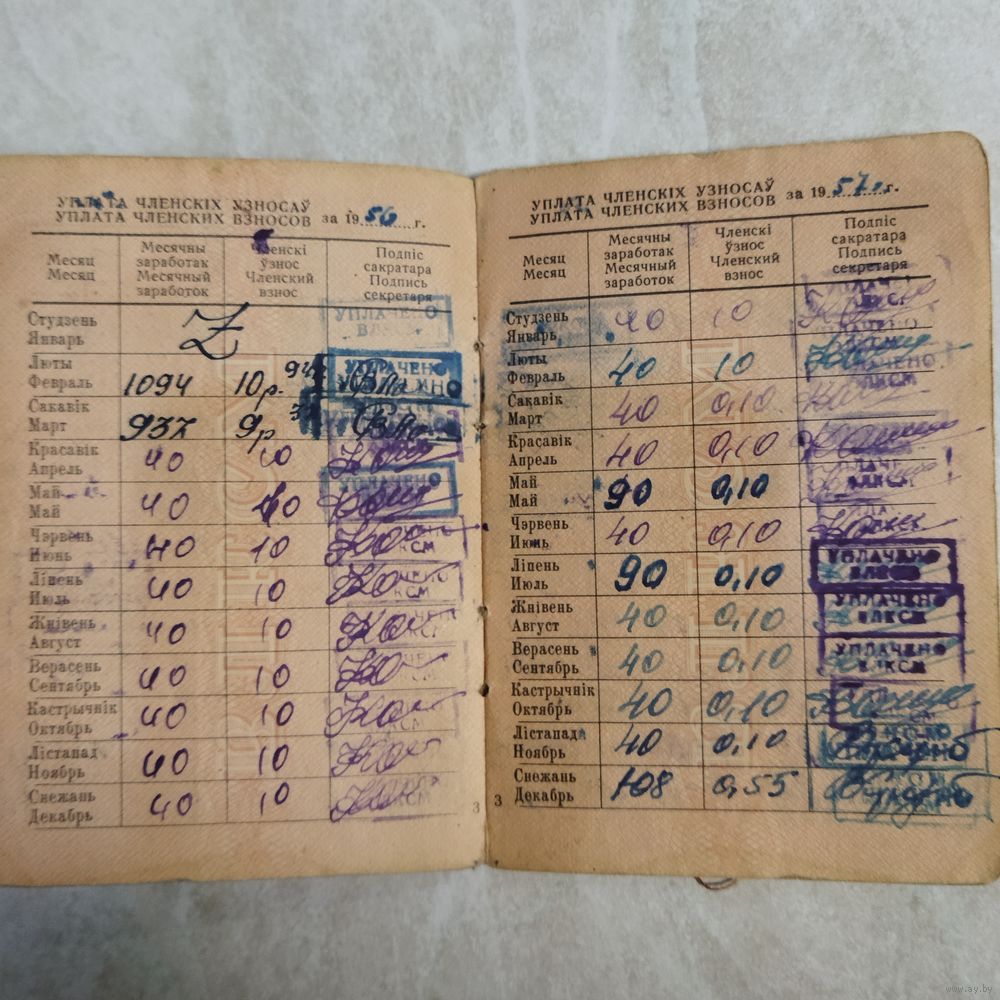 УПЛАТА ЧЛЕНСКІХ УЗНОСАЎ
УПЛАТА ЧЛЕНСКИХ ВЗНОСОВ за 1956 г.
Месяц
Месяц
Месячны
заработак
Месячный
заработок
Членскі
ўзнос
Членский
взнос
Подпіс
сакратара
Подпись
секретаря
Студзень
Январь Z УПЛАЧЕНО
Люты
Февраль 1094 10р. 94 УПЛАЧЕНО
Сакавік
Март 937 9р 37
Красавік
Апрель 40 10
Май
Май 40 10 УПЛАЧЕНО
Чэрвень
Июнь 40 10
Ліпень
Июль 40 10
Жнівень
Август 40 10
Верасень
Сентябрь 40 10
Кастрычнік
Октябрь 40 10
Лістапад
Ноябрь 40 10
Снежань
Декабрь 40 10
3
УПЛАТА ЧЛЕНСКІХ УЗНОСАЎ
УПЛАТА ЧЛЕНСКИХ ВЗНОСОВ за 1957 г.
Месяц
Месяц
Месячны
заработак
Месячный
заработок
Членскі
ўзнос
Членский
взнос
Подпіс
сакратара
Подпись
секретаря
Студзень
Январь 40 10
Люты
Февраль 40 10
Сакавік
Март 40 0,10
Красавік
Апрель 40 0,10
Май
Май 90 0,10
Чэрвень
Июнь 40 0,10
Ліпень
Июль 90 0,10 УПЛАЧЕНО ВЛКСМ
Жнівень
Август 40 0,10 УПЛАЧЕНО ВЛКСМ
Верасень
Сентябрь 40 0,10 УПЛАЧЕНО ВЛКСМ
Кастрычнік
Октябрь 40 0,10
Лістапад
Ноябрь 40 0,10
Снежань
Декабрь 108 0,55
3
www.ay.by